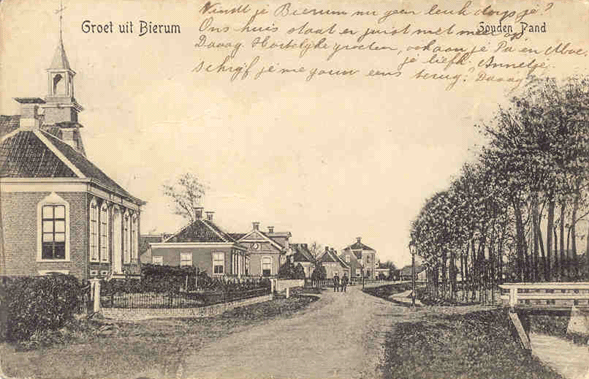 Groet uit Bierum
Gouden Pand
Vindt je Bierum nu geen leuk dorpje?
Ons huis staat er juist met meer op.
Daaag. Hartelijke groeten, ook aan je Pa en Moe.
je liefh. Annetje
Schrijf je me gauw eens terug? Daaag